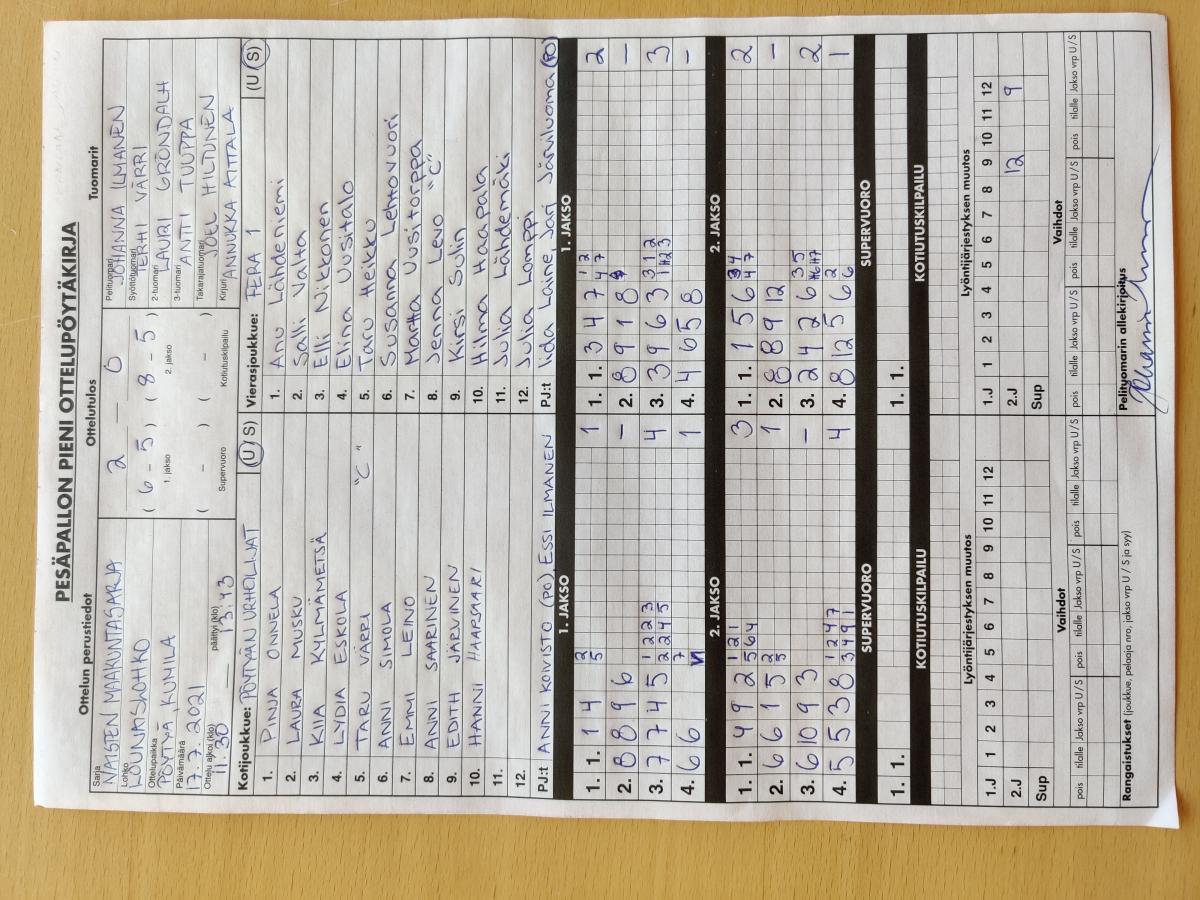 PESÄPALLON PIENI OTTELUPÖYTÄKIRJA
Ottelun perustiedot
Sarja
NAISTEN MAAKUNTASARJA
Lohko
LOUNASLOHKO
Ottelupaikka
PÖYTYÄ, KUMILA
Päivämäärä
17.7.2021
Ottelu alkoi (klo) päättyi (klo)
11.30 13:43
Ottelutulos
2 – 0
( 6 – 5 ) ( 8 – 5 )
1. jakso 2. jakso
( – ) ( – )
Supervuoro Kotiutuskilpailu
Tuomarit
Pelituomari
JOHANNA ILMANEN
Syöttötuomari
TERHI VÄRRI
2-tuomari
LAURI GRÖNDALH
3-tuomari
ANTI TUUPPA
Takarajatuomari
JOEL HILTUNEN
Kirjuri
ANNUKKA ATTALA
Kotijoukkue: PÖYTYÄN URHEILIJAT (U/S)
1. PINJA ONNELA
2. LAURA MUSKU
3. KIIA KYLMÄMETSÄ
4. LYDIA ESKOLA
5. TARU VÄRRI "C"
6. ANNI SIMOLA
7. EMMI LEINO
8. ANNI SAARINEN
9. EDITH JÄRVINEN
10. HANNI HAAPSAARI
11.
12.
PJ:t ANNI KOIVISTO (PO) ESSI ILMANEN
Vierasjoukkue: FERA 1 (U/S)
1. Anu Lähdeniemi
2. Salli Valta
3. Elli Nikkonen
4. Elina Uusitalo
5. Taru Heikku
6. Susanna Lehtovuori
7. Martta Uusitorppa
8. Jenna Levo "C"
9. Kirsi Sulin
10. Hilma Haapala
11. Julia Lähdemäki
12. Julia Lomppi
PJ:t Iida Laine Jari Järviluoma (PO)
1. JAKSO
1. 1. 1 4 2 5 1
2. 8 8 9 6 –
3. 7 7 4 5 1 2 2 3 2 2 4 5 4
4. 6 6 7 1
1. JAKSO
1. 1. 3 4 7 1 2 4 7 2
2. 8 9 1 8 –
3. 3 9 6 3 3 1 2 3
4. 4 6 5 8 –
2. JAKSO
1. 1. 4 9 2 1 2 1 5 6 4 3
2. 6 6 1 5 2 5 1
3. 6 10 9 3 –
4. 5 5 3 8 1 2 4 7 3 4 9 1 4
2. JAKSO
1. 1. 1 5 6 3 4 4 7 2
2. 8 8 9 12 –
3. 2 4 2 6 3 5 2
4. 8 12 5 6 2 6 1
SUPERVUORO
1. 1.
SUPERVUORO
1. 1.
KOTIUTUSKILPAILU
KOTIUTUSKILPAILU
Lyöntijärjestyksen muutos
1.J 1 2 3 4 5 6 7 8 9 10 11 12
2.J
Sup
Lyöntijärjestyksen muutos
1.J 1 2 3 4 5 6 7 8 9 10 11 12
2.J 12 9
Sup
Vaihdot
pois tilalle Jakso vrp U/S pois tilalle Jakso vrp U/S pois tilalle Jakso vrp U/S
Vaihdot
pois tilalle Jakso vrp U/S pois tilalle Jakso vrp U/S pois tilalle Jakso vrp U/S
Rangaistukset (joukkue, pelaaja nro, jakso vrp U / S ja syy)
Pelituomarin allekirjoitus